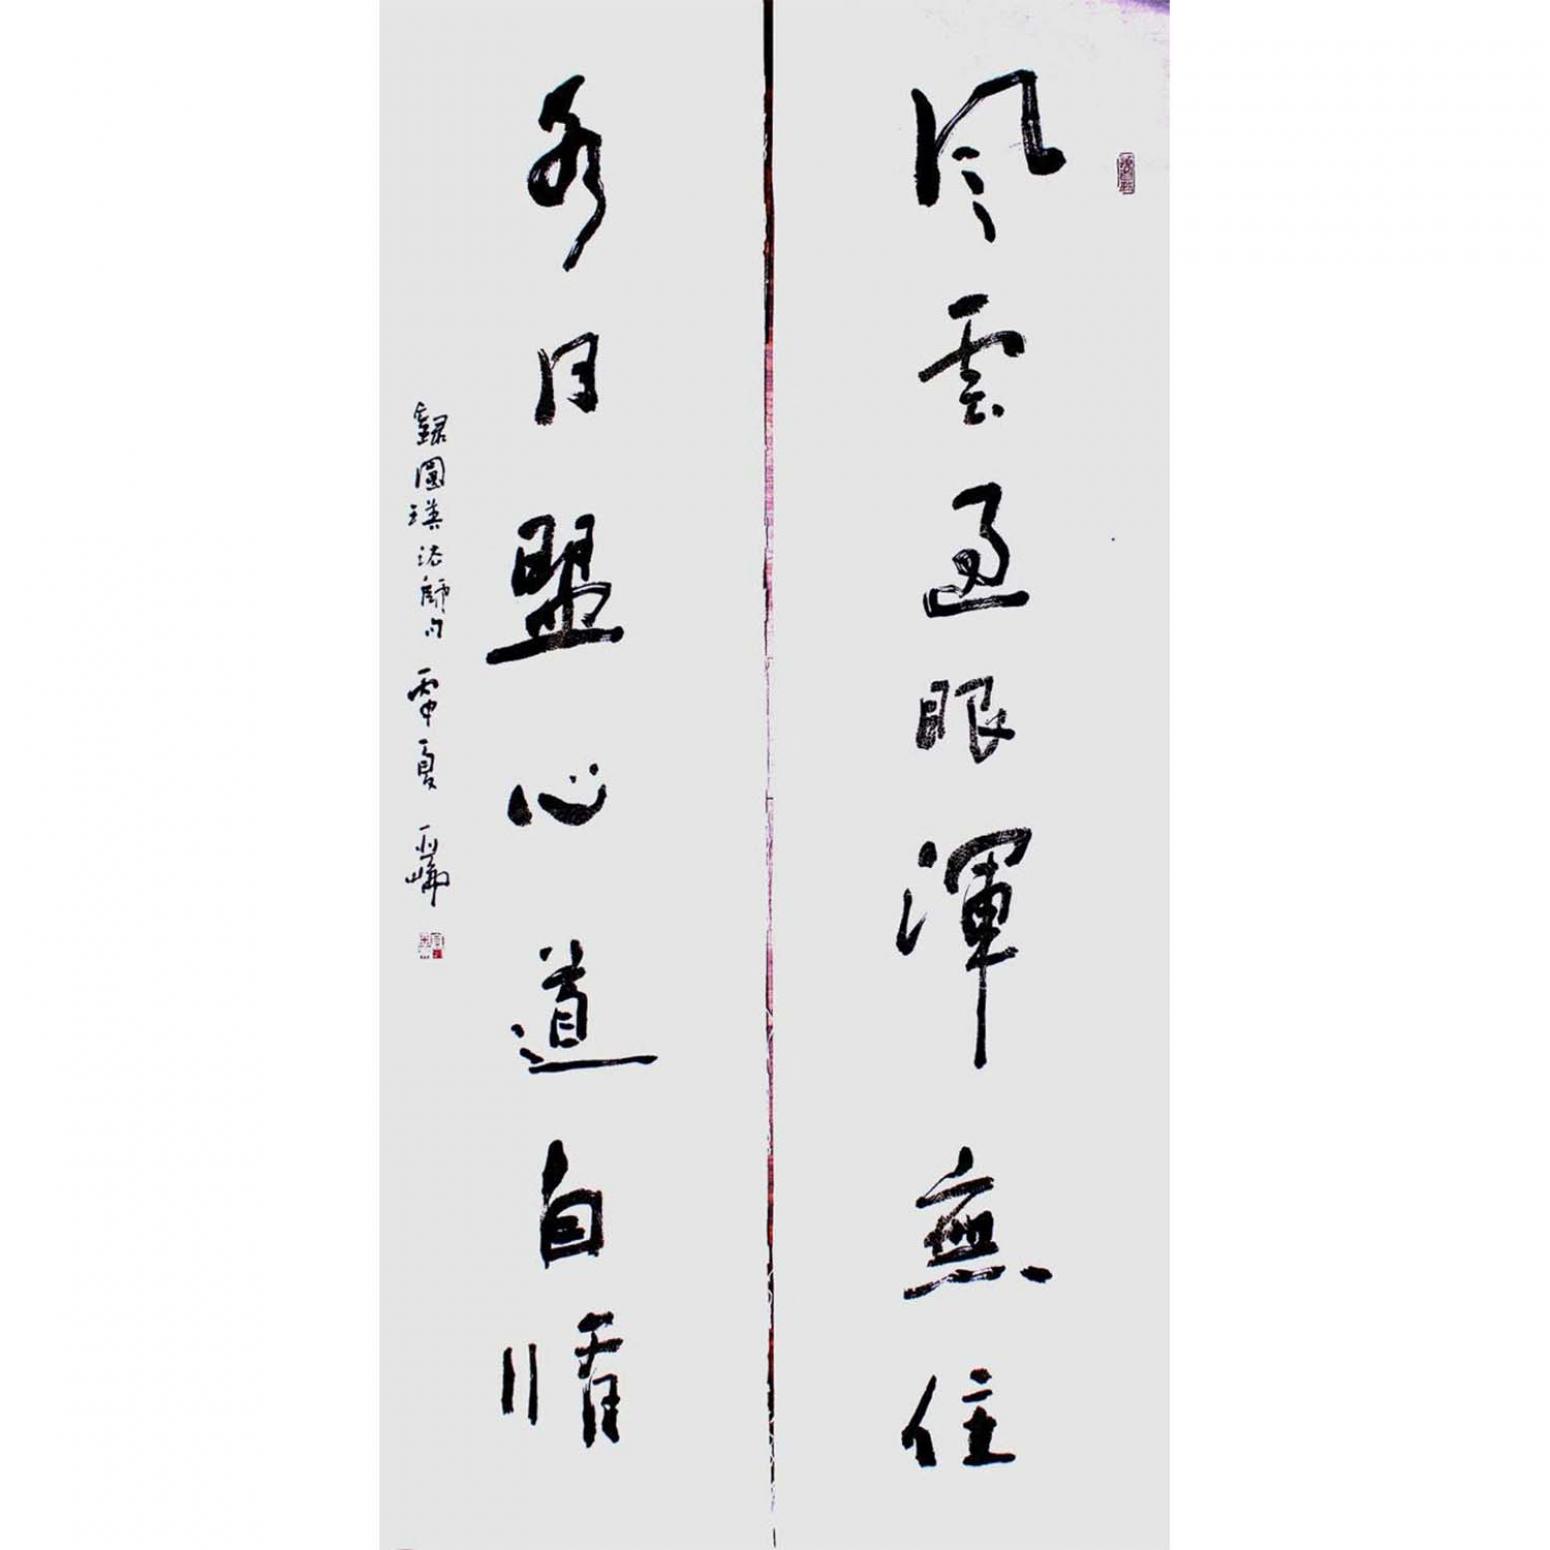 風雲過眼渾無住
水月盟心道自脩
錄圓瑛法師句 丙申夏